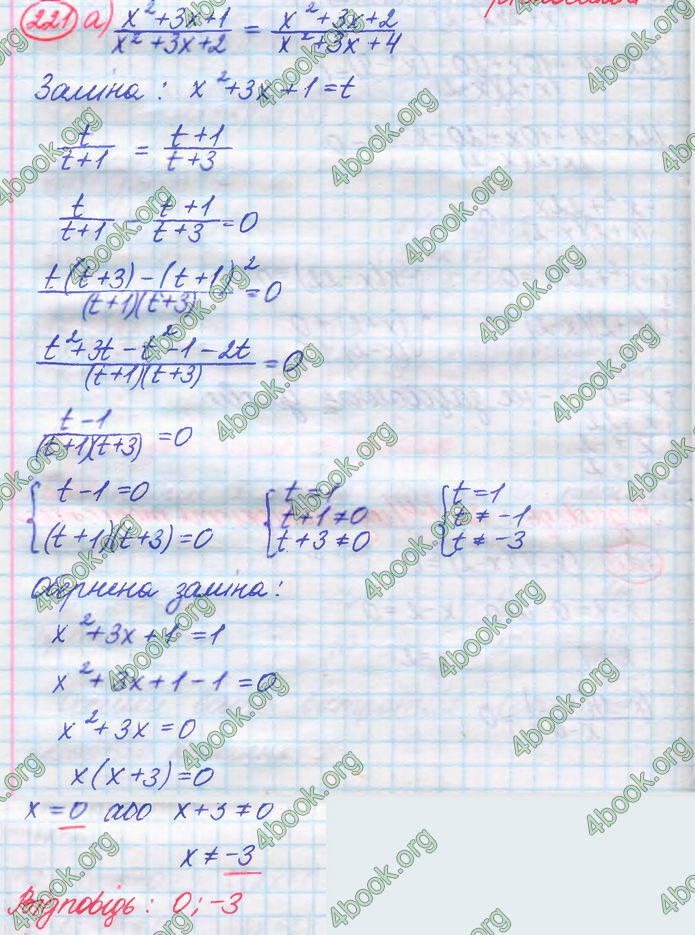 221 а) (x²+3x+1)/(x²+3x+2) = (x²+3x+2)/(x²+3x+4)
Заміна: x²+3x+1=t
t/(t+1) = (t+1)/(t+3)
t/(t+1) - (t+1)/(t+3) = 0
(t(t+3)-(t+1)²)/((t+1)(t+3)) = 0
(t²+3t-t²-1-2t)/((t+1)(t+3)) = 0
(t-1)/((t+1)(t+3)) = 0
{ t-1=0 { t=1 { t=1
t+1≠0 t≠-1
(t+1)(t+3)=0 t+3≠0 t≠-3
Обернена заміна:
x²+3x+1=1
x²+3x+1-1=0
x²+3x=0
x(x+3)=0
x=0 або x+3≠0
x≠-3
Відповідь: 0; -3
4book.org